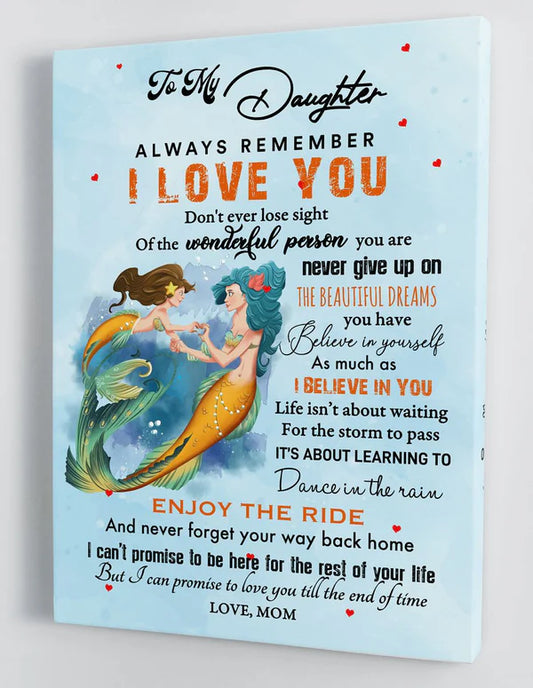 To My Daughter
ALWAYS REMEMBER
I LOVE YOU
Don't ever lose sight
Of the wonderful person you are
never give up on
THE BEAUTIFUL DREAMS
you have
Believe in yourself
As much as
I BELIEVE IN YOU
Life isn't about waiting
For the storm to pass
IT'S ABOUT LEARNING TO
Dance in the rain
ENJOY THE RIDE
And never forget your way back home
I can't promise to be here for the rest of your life
But I can promise to love you till the end of time
LOVE, MOM